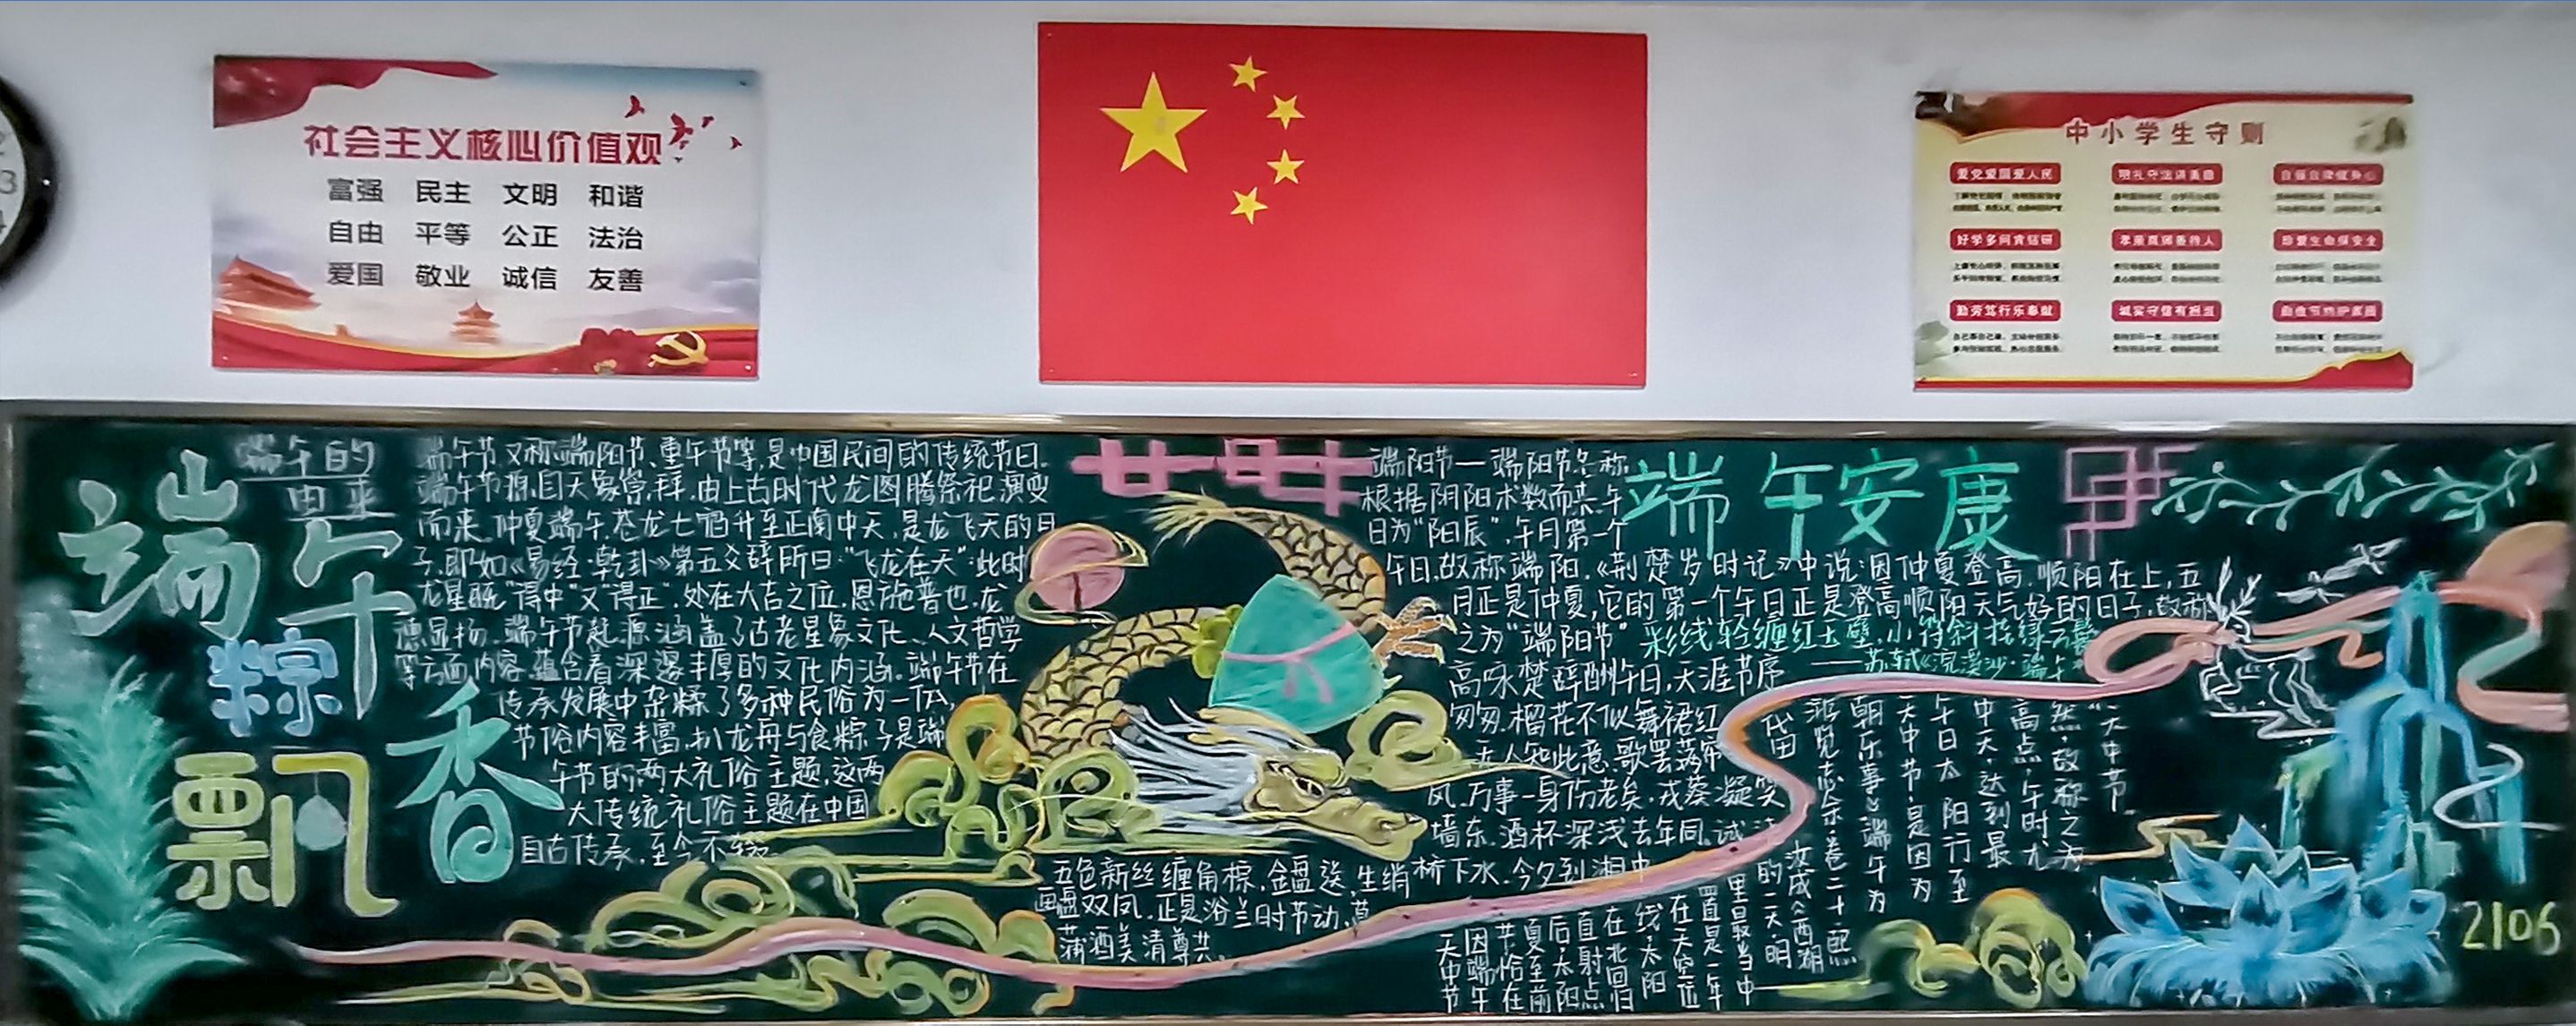 社会主义核心价值观
富强 民主 文明 和谐
自由 平等 公正 法治
爱国 敬业 诚信 友善
中小学生守则
爱党爱国爱人民
明礼守法讲美德
自强自律健身心
好学多问肯钻研
孝亲尊师善待人
珍爱生命保安全
勤劳笃行乐奉献
诚实守信有担当
勤俭节约护家园
端午
粽
飘
香
端午的
由来
端午节,又称端阳节、重午节等,是中国民间的传统节日。
端午节源自天象崇拜,由上古时代龙图腾祭祀演变
而来。仲夏端午,苍龙七宿升至正南中天,是龙飞天的日
子,即如《易经·乾卦》第五爻辞所曰:“飞龙在天”;此时
龙星既“得中”又“得正”,处在大吉之位,恩施普也,龙
德显扬。端午节起源涵盖了古老星象文化、人文哲学
等方面内容,蕴含着深邃丰厚的文化内涵。端午节在
传承发展中杂糅了多种民俗为一体,
节俗内容丰富,扒龙舟与食粽子是端
午节的两大礼俗主题,这两
大传统礼俗主题在中国
自古传承,至今不辍。
端阳节—端阳节名称
根据阴阳术数而来,午
日为“阳辰”,午月第一个
午日,故称端阳。《荆楚岁时记》中说:因仲夏登高,顺阳在上,五
月正是仲夏,它的第一个午日正是登高顺阳天气好的日子,故称
之为“端阳节”
端午安康
彩线轻缠红玉臂,小符斜挂绿云鬟
——苏轼《浣溪沙·端午》
高咏楚辞酬午日,天涯节序
匆匆,榴花不似舞裙红
无人知此意,歌罢满帘
风,万事一身伤老矣,戎葵凝笑
墙东,酒杯深浅去年同,试浇
桥下水,今夕到湘中
五色新丝缠角粽,金盘送,生绡
画扇盘双凤,正是浴兰时节动,菖
蒲酒美清尊共。
“天中节
然,故称之为
高点,午时尤
中天,达到最
午日太阳行至
天中节,是因为
朝乐事》:端午为
游览志余·卷二十熙
代田
汝成《西湖
的二天,明
里最当中
置是一年
在天空位
线,太阳
在北回归
直射点
后,太阳
夏至前
节恰在
因端午
天中节
2106